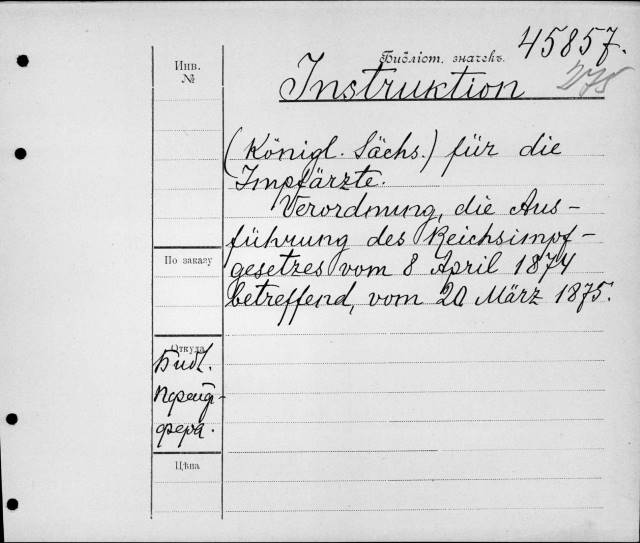 45857.
Библіот. значекъ.
275
Инв.
№
Instruktion
(Königl. Sächs.) für die
Impfärzte.
Verordnung, die Aus-
führung des Reichsimpf-
gesetzes vom 8 April 1874
betreffend, vom 20 März 1875.
По заказу
Откуда
Библ.
Пфейф-
фера.
Цѣна